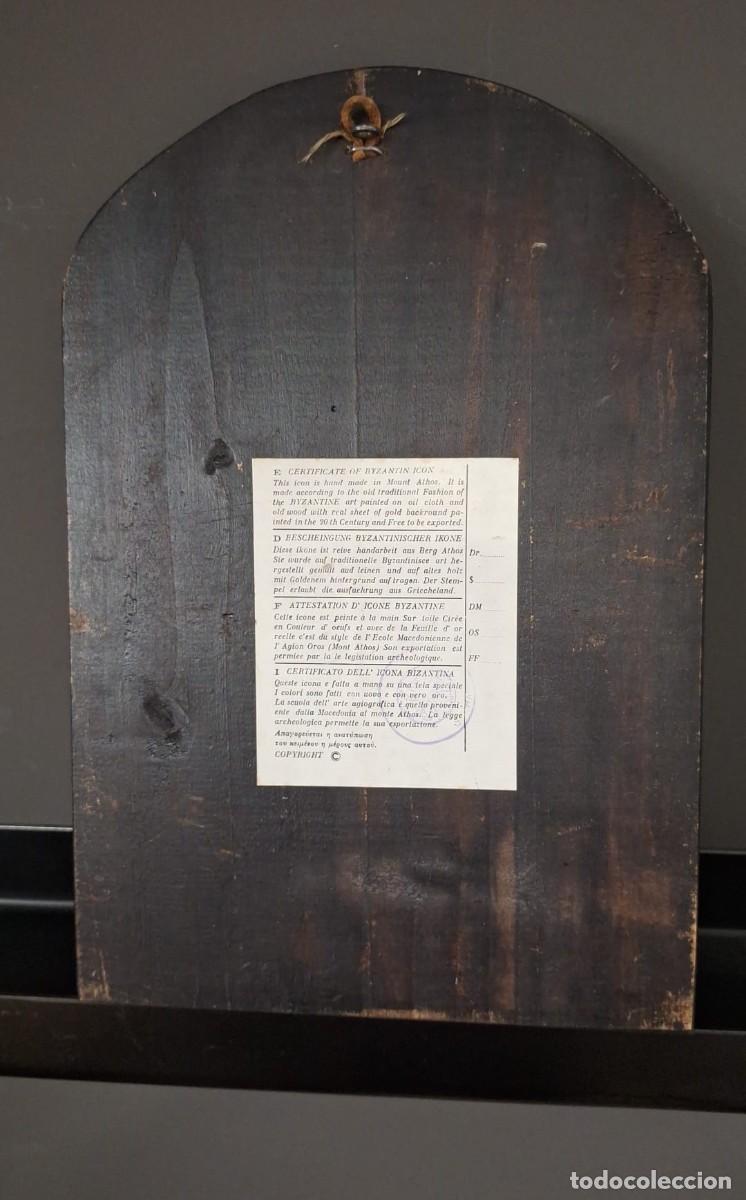 E CERTIFICATE OF BYZANTIN ICON
This icon is hand made in Mount Athos. It is
made according to the old traditional Fashion of
the BYZANTINE art painted on oil cloth and
old wood with real sheet of gold backround pa-
inted in the 90th Century and Free to be exported.
D BESCHEINGUNG BYZANTINISCHER IKONE
Diese ikone ist reive handarbeit aus Berg Athos
Sie wurde auf traditionelle Byzantinisce art he-
rgestellt gemalt auf leinen und auf altes holz
mit Goldenem hintergrund auf tragen. Der Stem-
pel erlaubt die ausfuchrung aus Griecheland.
F ATTESTATION D' ICONE BYZANTINE
Celle icone est peinte à la main Sur toile Cirée
en Couleur d' oeufs et avec de la Feuille d' or
reelle c'est du style de l' Ecole Macedonienne de
l' Agion Oros (Mont Athos) Son exportation est
permiee par la le legistation archeologique.
I CERTIFICATO DELL' ICONA BIZANTINA
Queste icona e falta a mano su una tela speciale
I colori sono fatti con uova e con vero oro.
La scuola dell' arte agiografica è quella proveni-
ente dalla Macedonia al monte Athos. La legge
archeologica permette la sua esportazione.
Απαγορεύεται η ανατύπωση
του κειμένου η μέρους αυτού.
COPYRIGHT ©
Dr.
$
DM
OS
FF
todocoleccion